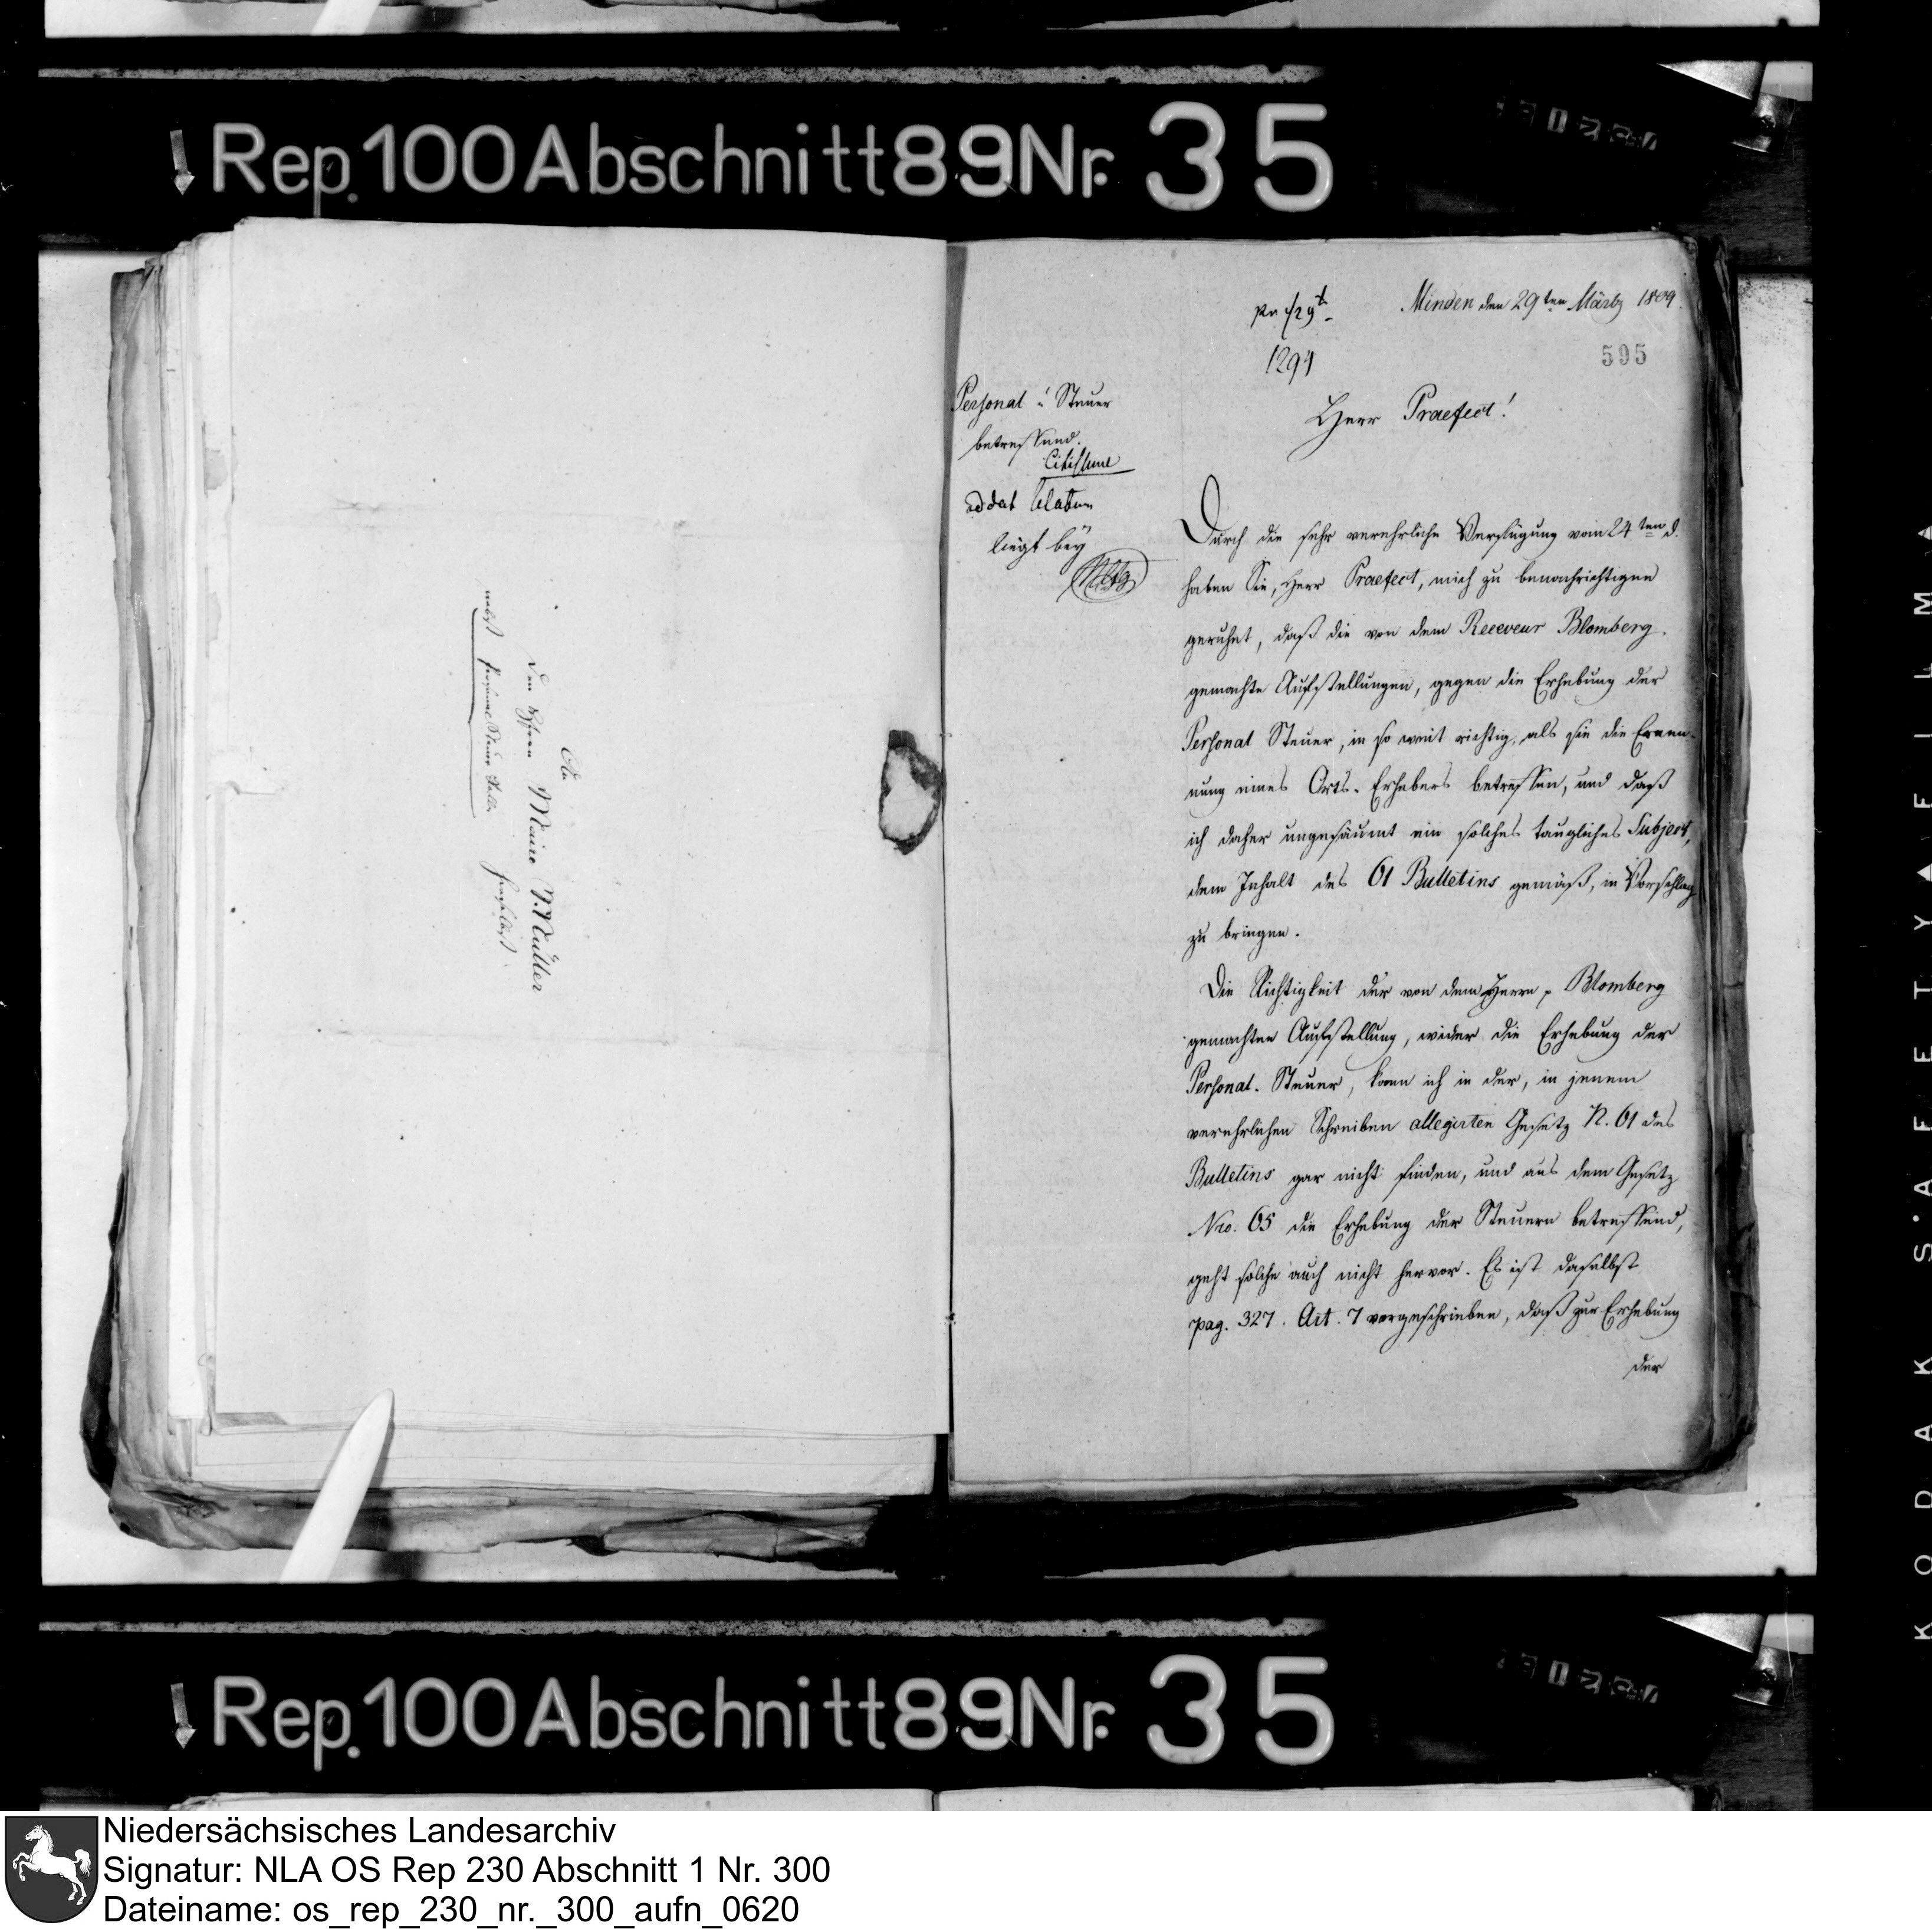 Rep. 100 Abschnitt 89 Nr. 35
An
den Herrn Maire Müller
hieselbst
nebst
Minden den 29ten März 1809.
1294
595
Personal-Steuer
betreffend.
Citissime
liegt bey
Herr Praefect!
Durch die sehr verehrliche Verfügung vom 24ten d.
haben Sie, Herr Praefect, mich zu benachrichtigen
geruhet, daß die von dem Receveur Blomberg
gemachte Ausstellungen, gegen die Erhebung der
Personal Steuer, in so weit richtig, als sie die Ernen-
nung eines Orts-Erhebers betreffen, und daß
ich daher ungesäumt ein solches taugliches Subject,
dem Inhalt des 61 Bulletins gemäß, in Vorschlag
zu bringen.
Die Richtigkeit der von dem Herrn Blomberg
gemachten Ausstellung, wider die Erhebung der
Personal-Steuer, kann ich in der, in jenem
verehrlichen Schreiben allegirten Gesetz N. 61 des
Bulletins gar nicht finden, und aus dem Gesetz
Nro. 65 die Erhebung der Steuern betreffend,
geht solche auch nicht hervor. Es ist daselbst
pag. 327. Art. 7 vorgeschrieben, daß zur Erhebung
der
KODAK SAFETY FILM
Rep. 100 Abschnitt 89 Nr. 35
Niedersächsisches Landesarchiv
Signatur: NLA OS Rep 230 Abschnitt 1 Nr. 300
Dateiname: os_rep_230_nr._300_aufn_0620